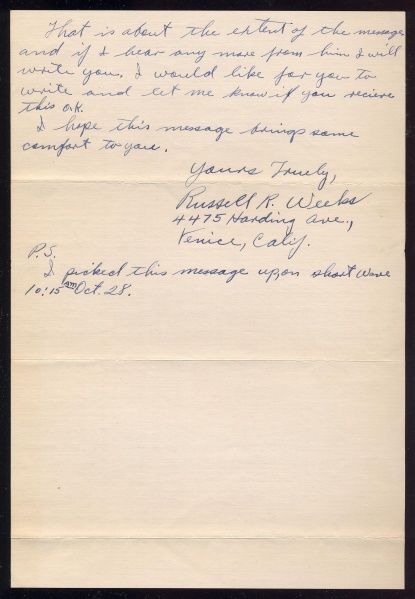 That is about the extent of the message
and if I hear any more from him I will
write you. I would like for you to
write and let me know if you recieve
this O.K.
I hope this message brings some
comfort to you.
Yours Truely,
Russell R. Weeks
4475 Harding Ave.,
Venice, Calif.
P.S.
I picked this message upon short wave
10:15 am Oct. 28.